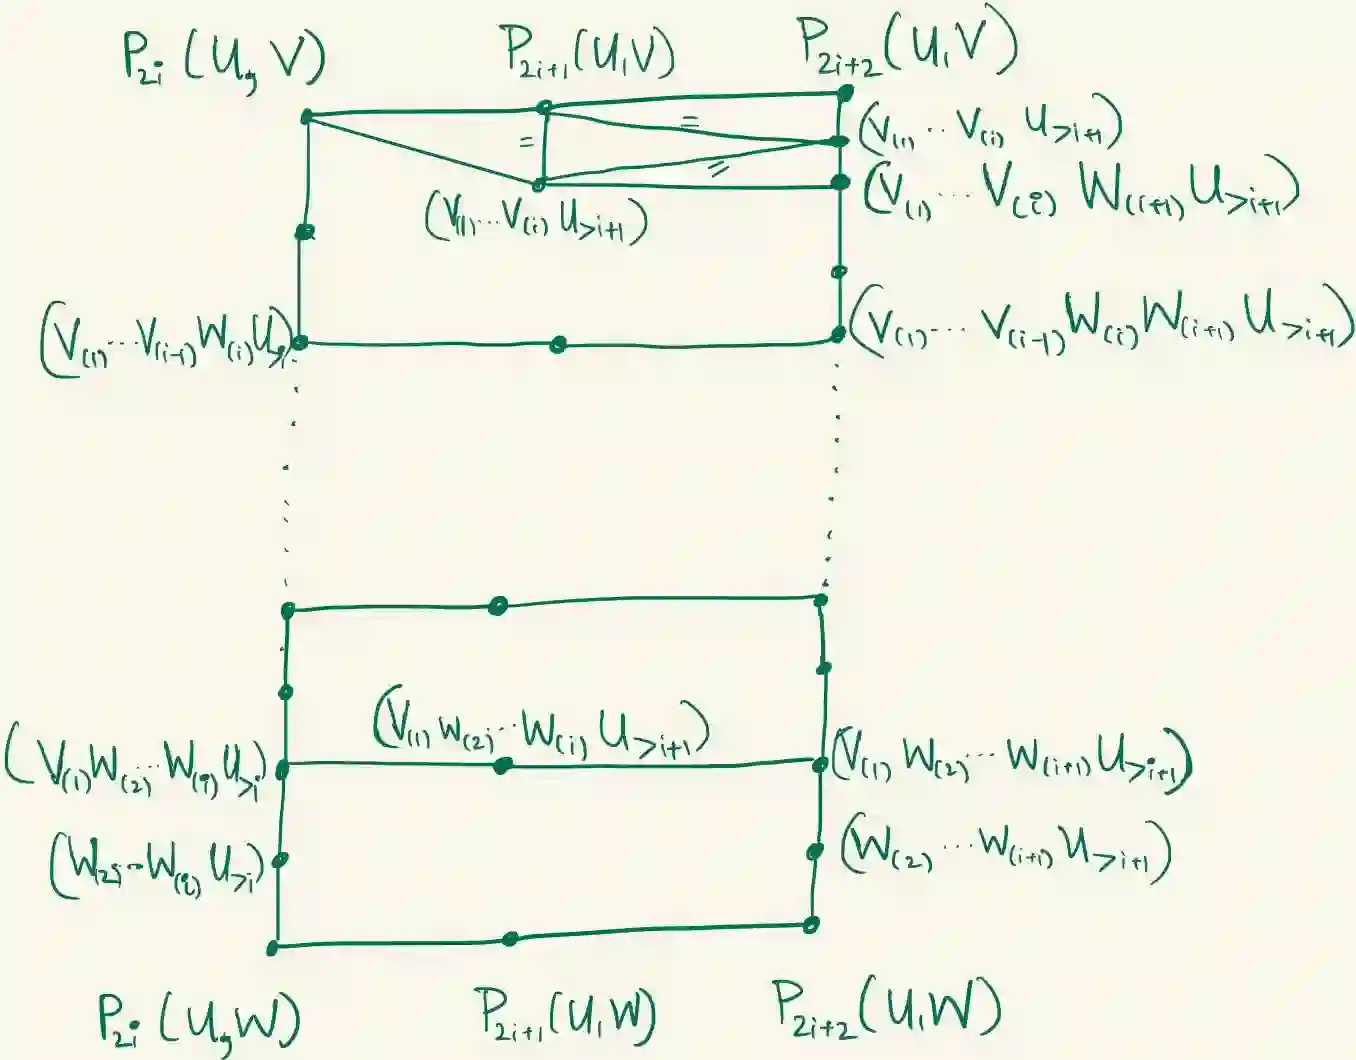 P_{2i}(U, V) P_{2i+1}(U, V) P_{2i+2}(U, V)
=
=
=
(V_{(1)} ·· V_{(i)} U_{>i+1})
(V_{(1)} ··· V_{(i)} W_{(i+1)} U_{>i+1})
(V_{(1)} ··· V_{(i)} U_{>i+1})
(V_{(1)} ··· V_{(i-1)} W_{(i)} U_{>i}) (V_{(1)} ··· V_{(i-1)} W_{(i)} W_{(i+1)} U_{>i+1})
(V_{(1)} W_{(2)} ··· W_{(i)} U_{>i+1})
(V_{(1)} W_{(2)} ·· W_{(i)} U_{>i}) (V_{(1)} W_{(2)} ··· W_{(i+1)} U_{>i+1})
(W_{(2)} ··· W_{(i)} U_{>i}) (W_{(2)} ··· W_{(i+1)} U_{>i+1})
P_{2i}(U, W) P_{2i+1}(U, W) P_{2i+2}(U, W)